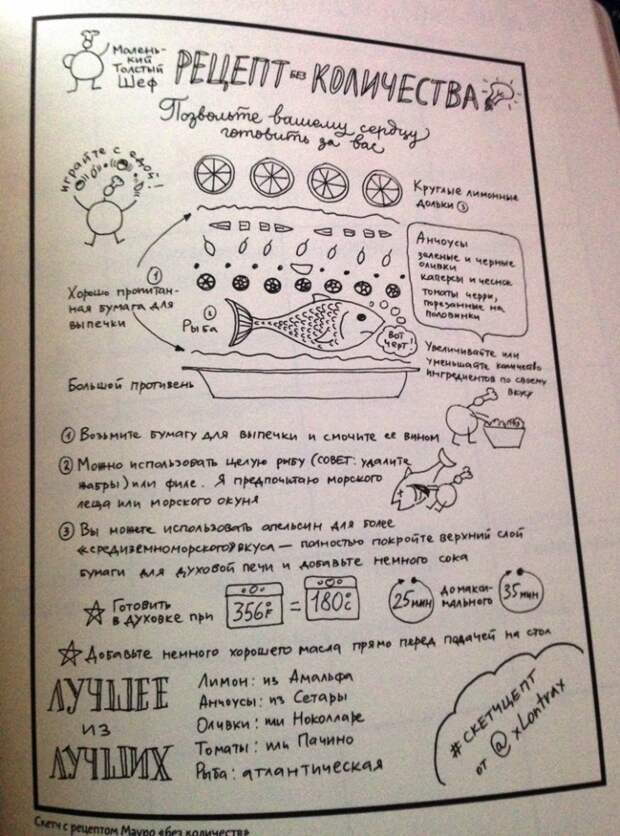 Малень-
кий
Толстый
Шеф
РЕЦЕПТ БЕЗ КОЛИЧЕСТВА
Позвольте вашему сердцу
готовить за вас
играйте с едой!
Круглые лимонные
дольки ③
Анчоусы
зеленые и черные
оливки
каперсы и чеснок
томаты черри,
порезанные на
половинки
①
Хорошо пропитан-
ная бумага для
выпечки
② Рыба
ВОТ
ЧЕРТ!
Увеличивайте или
уменьшайте количество
ингредиентов по своему
вкусу
Большой противень
① Возьмите бумагу для выпечки и смочите ее вином
② Можно использовать целую рыбу (СОВЕТ: удалите
жабры) или филе. Я предпочитаю морского
леща или морского окуня
③ Вы можете использовать апельсин для более
«средиземноморского» вкуса — полностью покройте верхний слой
бумаги для духовой печи и добавьте немного сока
Готовить
в духовке при
356°F = 180°C
25 мин
до макси-
мального
35 мин
Добавьте немного хорошего масла прямо перед подачей на стол
ЛУЧШЕЕ
ИЗ
ЛУЧШИХ
Лимон: из Амальфа
Анчоусы: из Сетары
Оливки: тип Ноколларе
Томаты: тип Пачино
Рыба: атлантическая
#СКЕТЧЦЕПТ
от @xLontrax
Скетч с рецептом Мауро «без количеств»